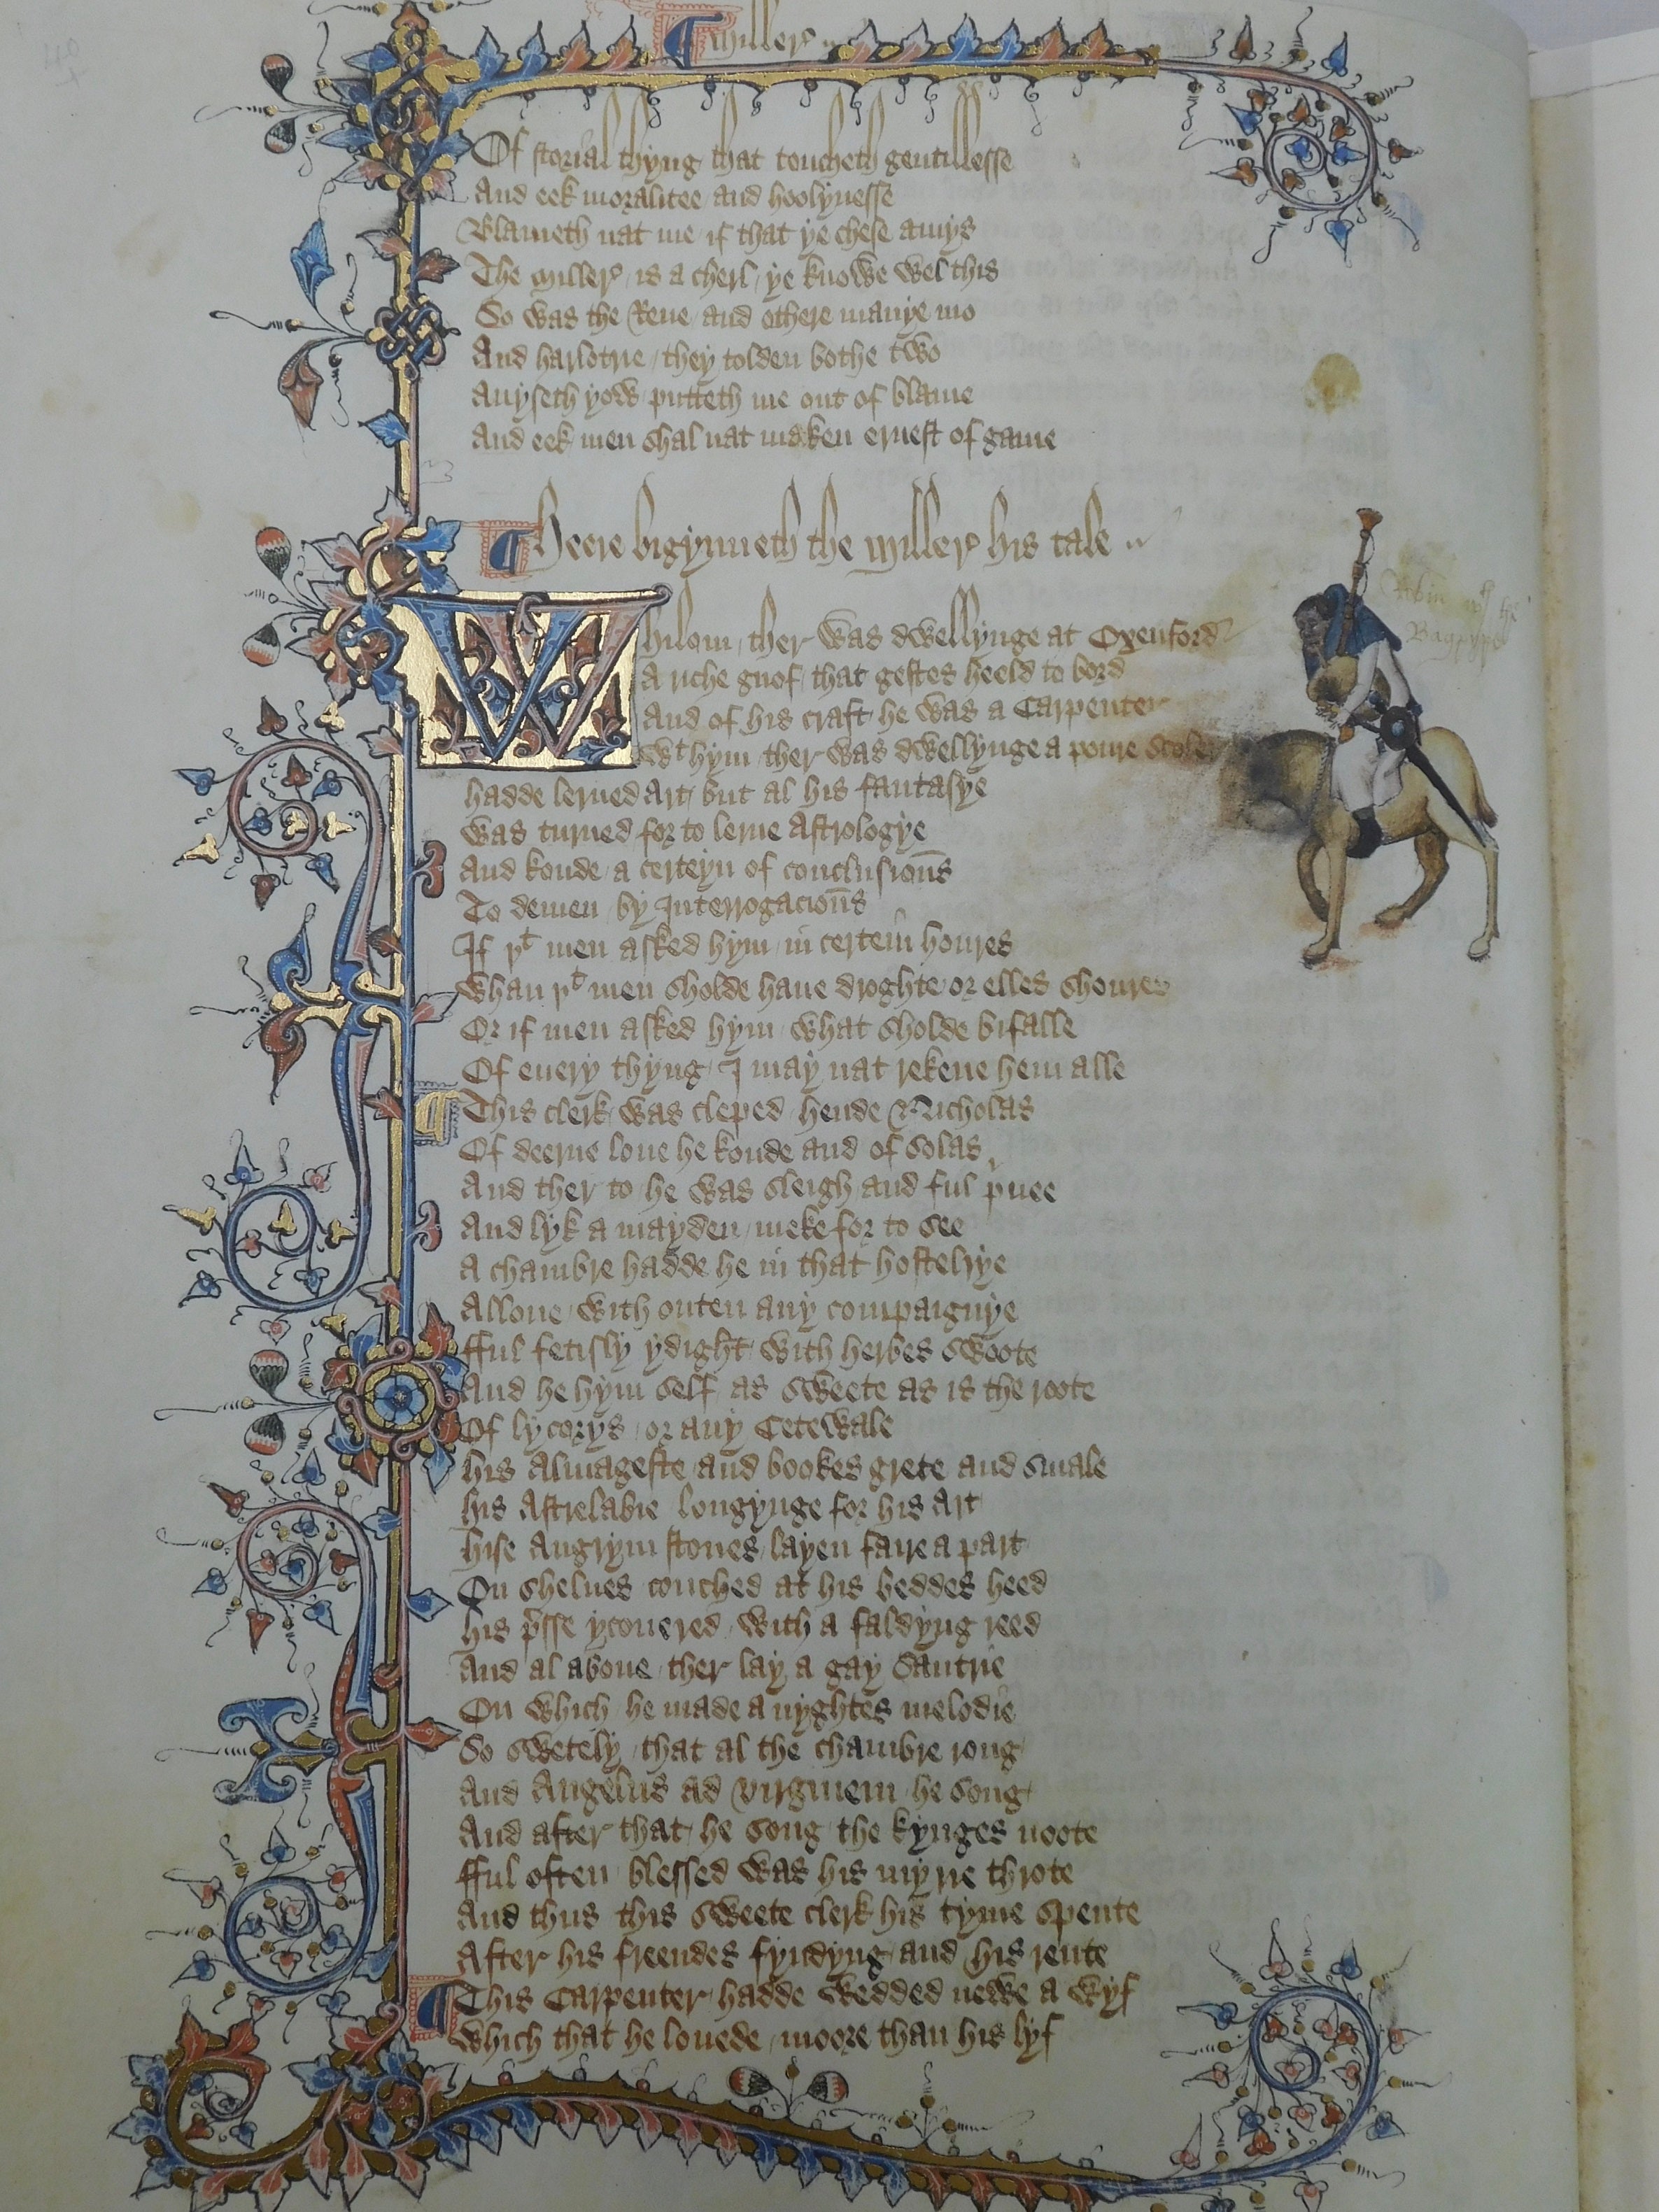 ¶ Miller
Of storial thyng that toucheth gentillesse
And eek moralitee and hoolynesse
Blameth nat me if that ye chese amys
The Miller is a cherl ye knowe wel this
So was the Reue and othere manye mo
And harlotrie they tolden bothe two
Auyseth yow putteth me out of blame
And eek men shal nat maken ernest of game
¶ Heere bigynneth the Miller his tale
Whilom ther was dwellynge at Oxenford
A riche gnof that gestes heeld to bord
And of his craft he was a Carpenter
Wt hym ther was dwellynge a poure Scoler
hadde lerned Art but al his fantasye
Was turned for to lerne Astrologye
And koude a certeyn of conclusions
To demen by Interrogacions
If þt men asked hym in certein houres
Whan þt men sholde haue droghte or elles shoures
Or if men asked hym what sholde bifalle
Of euery thyng I may nat rekene hem alle
¶ This clerk was cleped hende Nicholas
Of deerne loue he koude and of solas
And ther to he was sleigh and ful puee
And lyk a mayden meke for to see
A chambre hadde he in that hostelrye
Allone with outen any compaignye
fful fetisly ydight with herbes swoote
And he hym self as sweete as is the roote
Of lycorys or any Cetewale
his Almageste and bookes grete and smale
his Astrelabie longynge for his Art
hise Augrym stones layen faire a part
On shelues couched at his beddes heed
his psse ycouered with a faldyng reed
And al aboue ther lay a gay Sautrie
On which he made a nyghtes melodie
So swetely that al the chambre rong
And Angelus ad virginem he song
And after that he song the kynges noote
fful often blessed was his myrie throte
And thus this sweete clerk his tyme spente
After his freendes fyndyng and his rente
¶ This Carpenter hadde wedded newe a wyf
Which that he louede moore than his lyf
Robin wth the
Bagpype